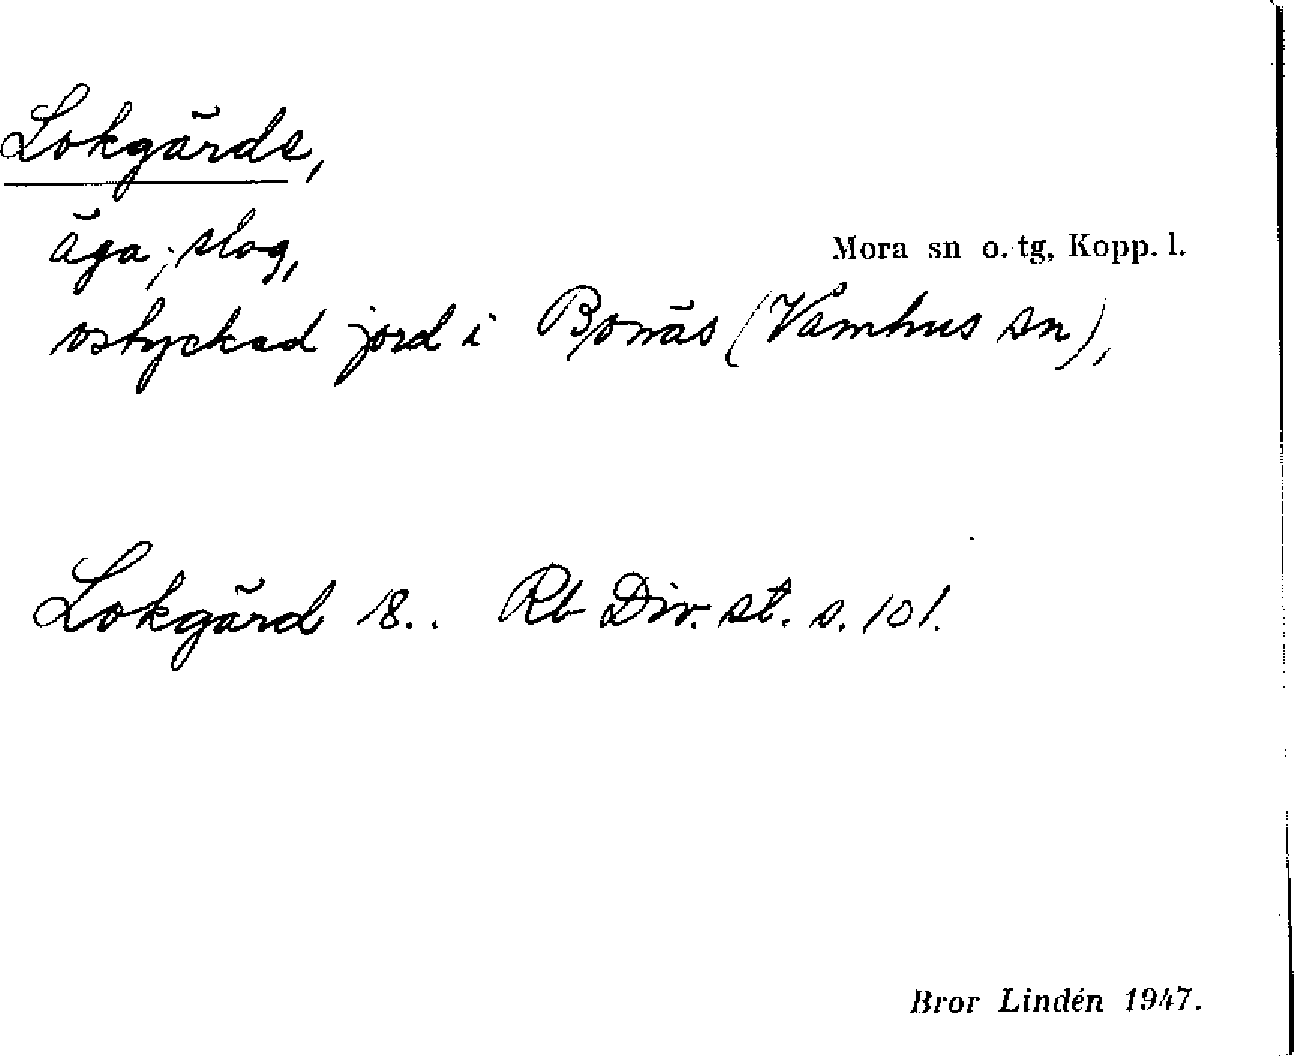 Lokgärds,
äga; slog,
Mora sn o. tg, Kopp. l.
ostyckad jord i Bonäs (Våmhus sn),
Lokgärd 18.. Rb Div. st. s. 101.
Bror Lindén 1947.